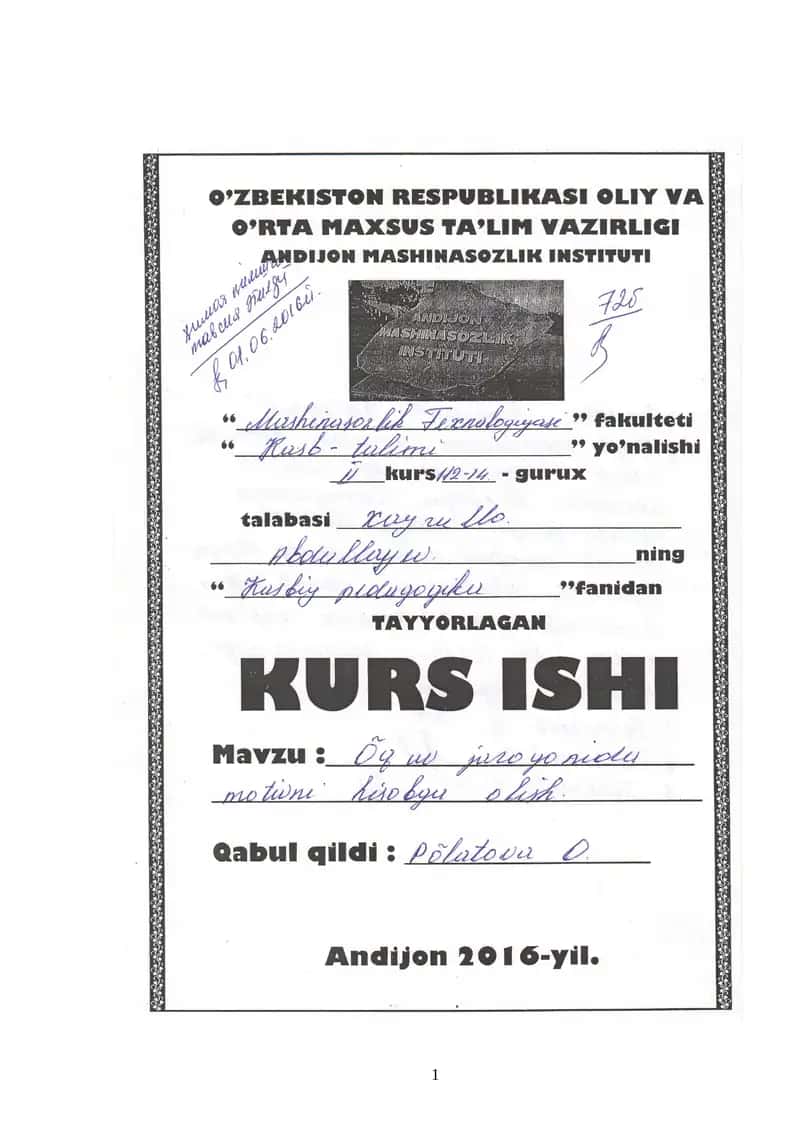 O'ZBEKISTON RESPUBLIKASI OLIY VA
O'RTA MAXSUS TA'LIM VAZIRLIGI
ANDIJON MASHINASOZLIK INSTITUTI
тавсия этилди
01.06.2016й.
ANDIJON
MASHINASOZLIK
INSTITUTI
72б
“ Mashinasozlik Texnologiyasi ” fakulteti
“ Kasb - talimi ” yo'nalishi
II kurs 112-14 - gurux
talabasi Xayrullo
Abdullayev ning
“ Kasbiy pedagogika ”fanidan
TAYYORLAGAN
KURS ISHI
Mavzu : Õquv jaroyonida
motivni hisobga olish.
Qabul qildi : Põlatova O.
Andijon 2016-yil.
1